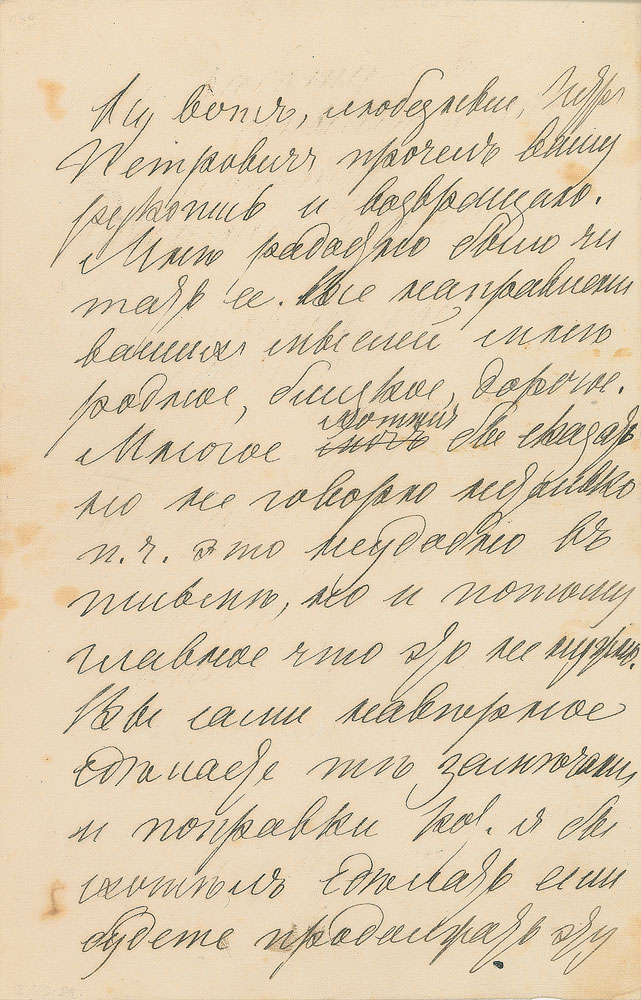 Ну вотъ, любезный, Петр
Петровичъ прочелъ вашу
рукопись и возвращаю.
Мнѣ радостно было чи
тать ее. Все направлени
вашихъ мыслей мнѣ
родное, близкое, дорогое.
Многое хотѣлъ бы сказать
но не говорю не только
п. ч. это неудобно въ
письмѣ, но и потому
главное что это не нужно.
Вы сами навѣрное
сдѣлаете тѣ замѣчани
и поправки кот. я бы
хотѣлъ сдѣлать если
будете продолжать эту